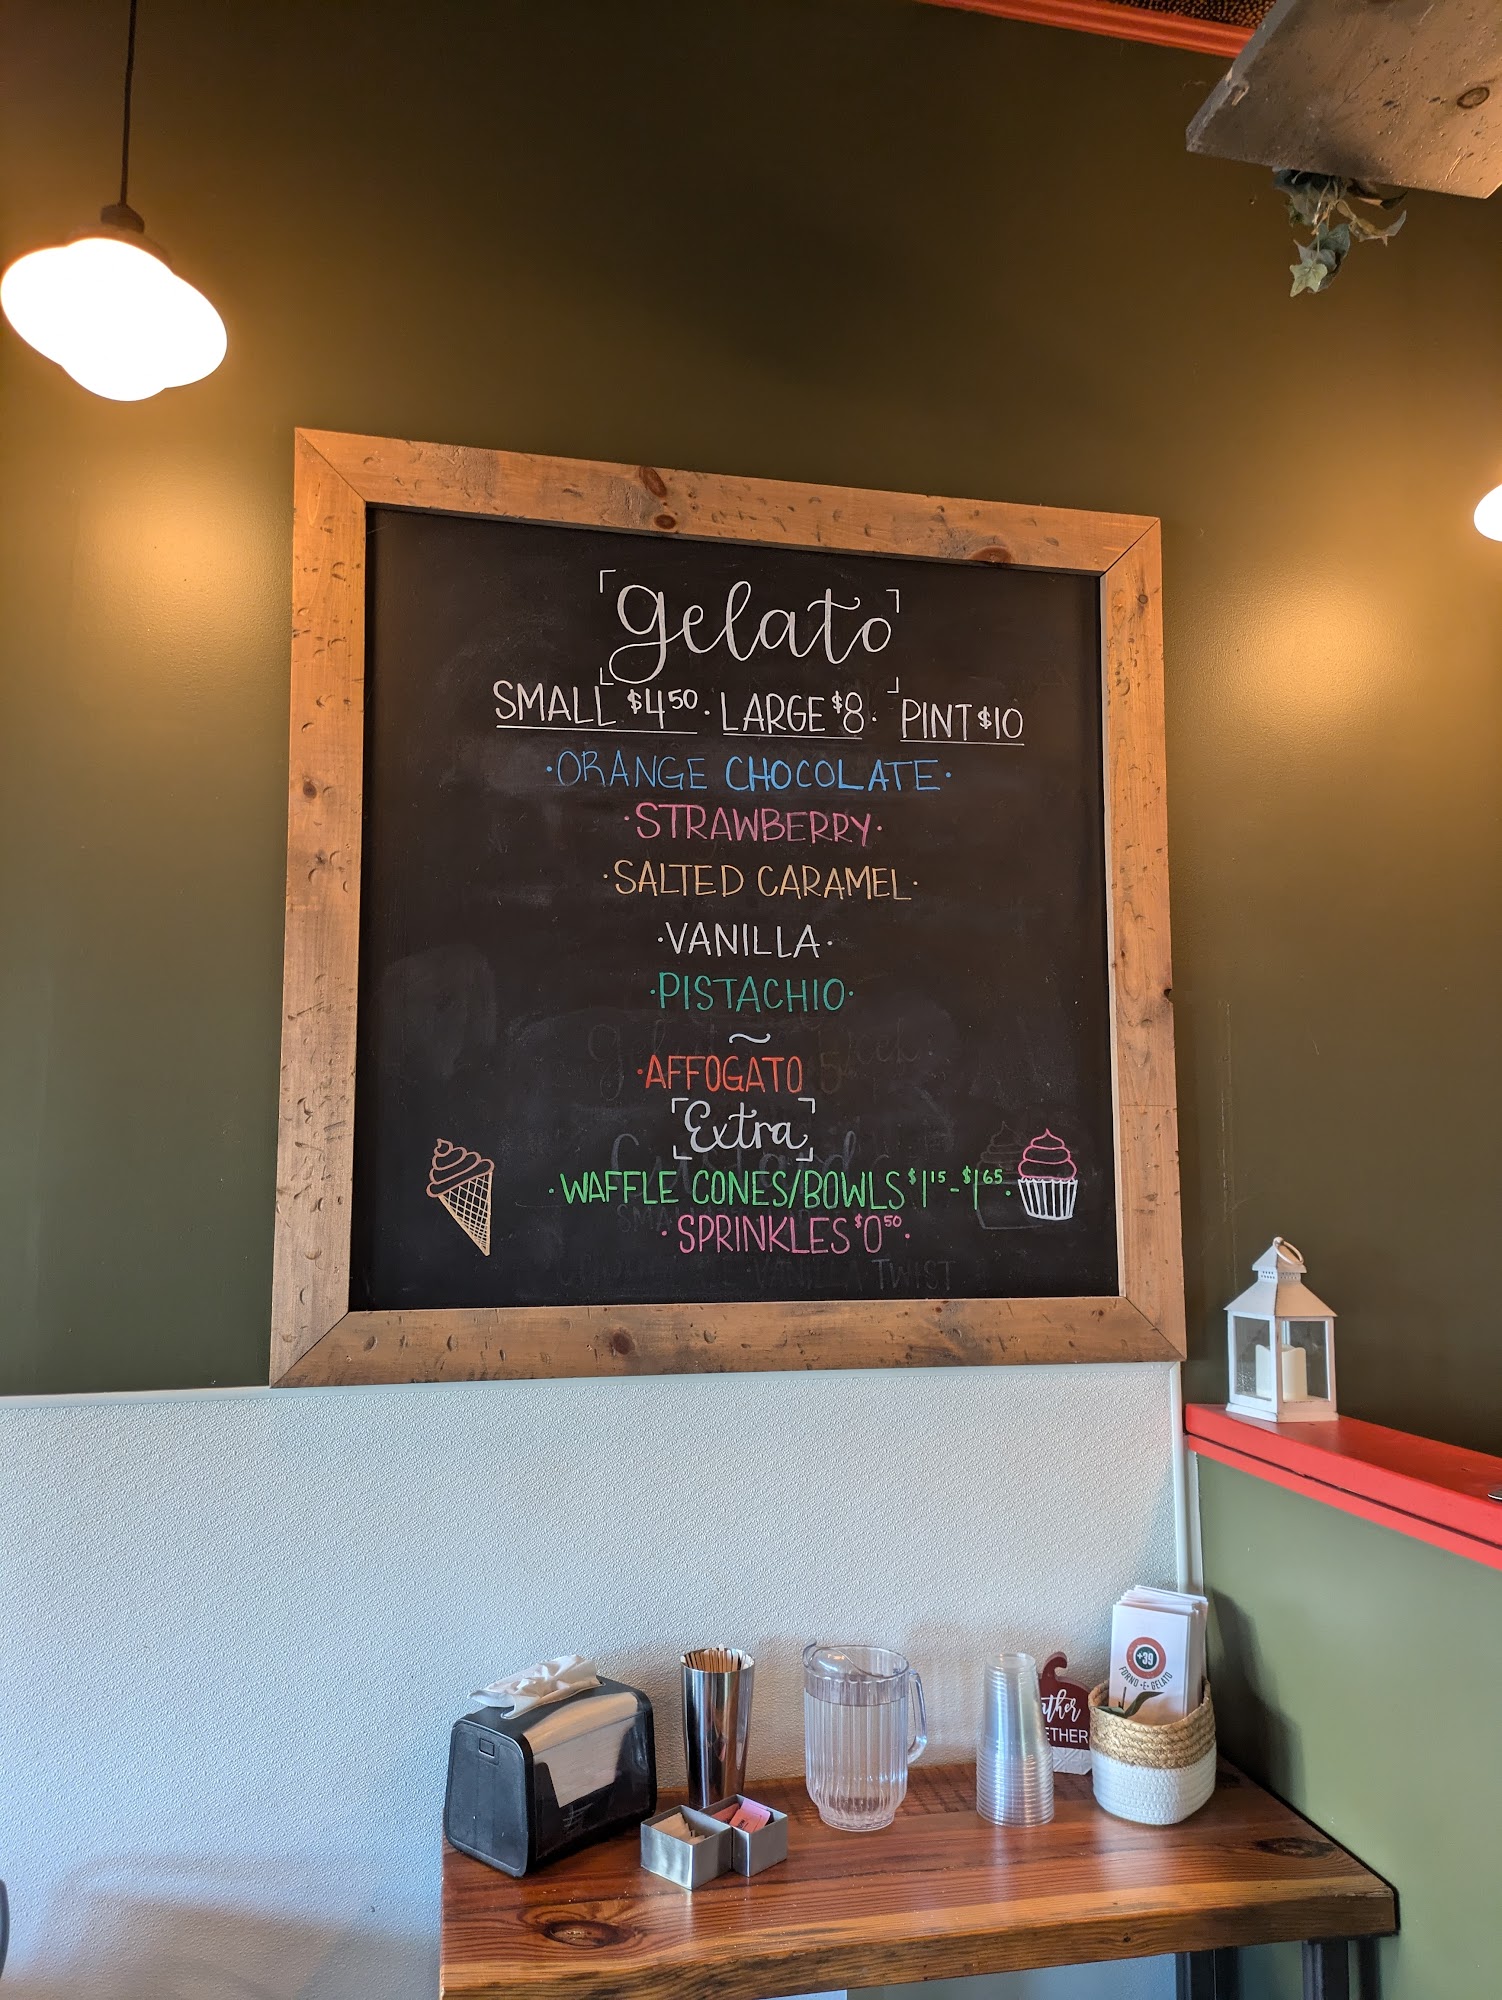 gelato
SMALL $4.50 · LARGE $8 · PINT $10
·ORANGE CHOCOLATE·
·STRAWBERRY·
·SALTED CARAMEL·
·VANILLA·
·PISTACHIO·
~
·AFFOGATO 5
Extra
·WAFFLE CONES/BOWLS $1.15-$1.65·
·SPRINKLES $0.50·
VANILLA TWIST
+39
FORNO·E·GELATO
ETHER